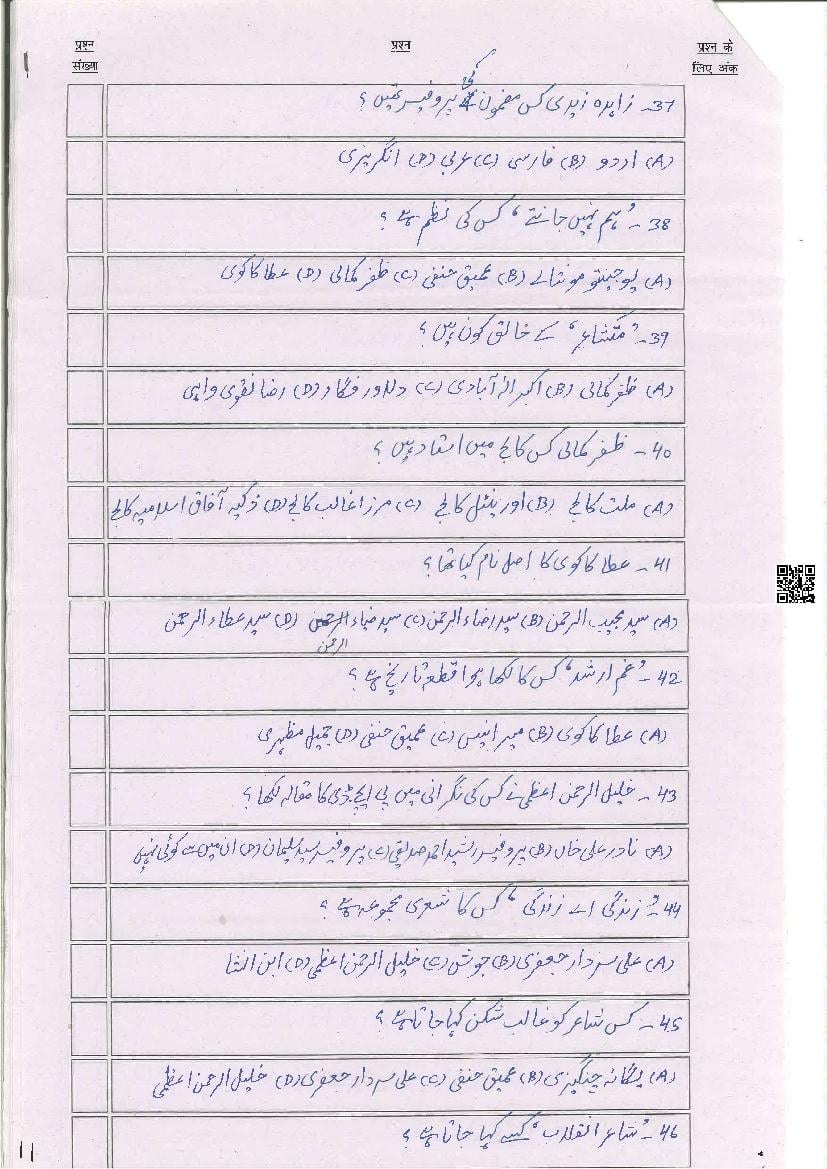 प्रश्न संख्या
प्रश्न
प्रश्न के लिए अंक
37- زاہدہ زیدی کس مضمون کی پروفیسر تھیں؟
(A) اردو (B) فارسی (C) عربی (D) انگریزی
38- ’ہم نہیں جانتے‘ کس کی نظم ہے؟
(A) یوجینو مونتالے (B) عمیق حنفی (C) ظفر کمالی (D) عطا کاکوی
39- ’متشاعر‘ کے خالق کون ہیں؟
(A) ظفر کمالی (B) اکبر الٰہ آبادی (C) دلاور فگار (D) رضا نقوی واہی
40- ظفر کمالی کس کالج میں استاد ہیں؟
(A) ملت کالج (B) اورینٹل کالج (C) مرزا غالب کالج (D) ذکیہ آفاق اسلامیہ کالج
41- عطا کاکوی کا اصل نام کیا تھا؟
(A) سید مجیب الرحمن (B) سید رضاء الرحمن (C) سید ضیاء الرحمن (D) سید عطاء الرحمن
42- ’غم ارشد‘ کس کا لکھا ہوا قطعہ تاریخ ہے؟
(A) عطا کاکوی (B) میر انیس (C) عمیق حنفی (D) جمیل مظہری
43- خلیل الرحمن اعظمی نے کس کی نگرانی میں پی ایچ ڈی کا مقالہ لکھا؟
(A) نادر علی خاں (B) پروفیسر رشید احمد صدیقی (C) پروفیسر سید سلیمان (D) ان میں سے کوئی نہیں
44- ’زندگی اے زندگی‘ کس کا شعری مجموعہ ہے؟
(A) علی سردار جعفری (B) جوش (C) خلیل الرحمن اعظمی (D) ابن انشا
45- کس شاعر کو غالب شکن کہا جاتا ہے؟
(A) یگانہ چنگیزی (B) عمیق حنفی (C) علی سردار جعفری (D) خلیل الرحمن اعظمی
46- ’شاعر انقلاب‘ کسے کہا جاتا ہے؟
11